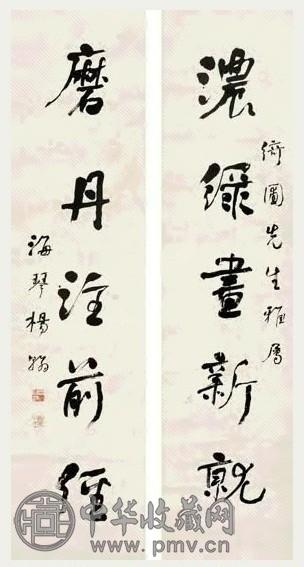 濃綠畫新就
圖先生雅屬
磨丹注前經
海琴楊翰
中华收藏网
www.pmv.cn